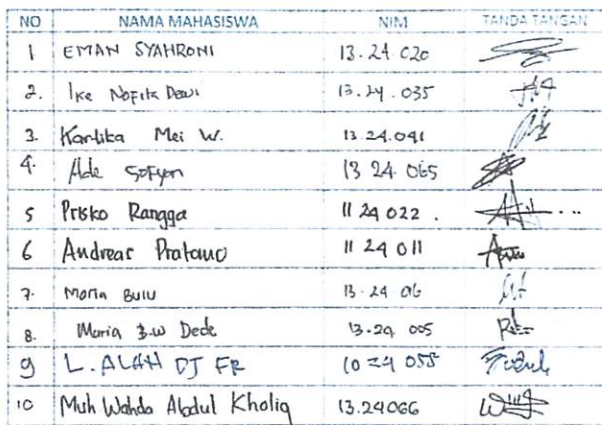 NO NAMA MAHASISWA NIM TANDA TANGAN
1 EMAN SYAHRONI 13.24.020
2. Ike Nofita Dewi 13.24.035
3. Kartika Mei W. 13.24.041
4. Ade Sofyan 13 24 065
5 Prisko Rangga 11 24 022 .
6 Andreas Pratama 11 24 011
7. Maria BULU 13.24
8. Maria B.W Dede 13.24 005
9 L. ALAH DJ FR 10 24 055
10 Muh Wahda Abdul Kholiq 13.24066